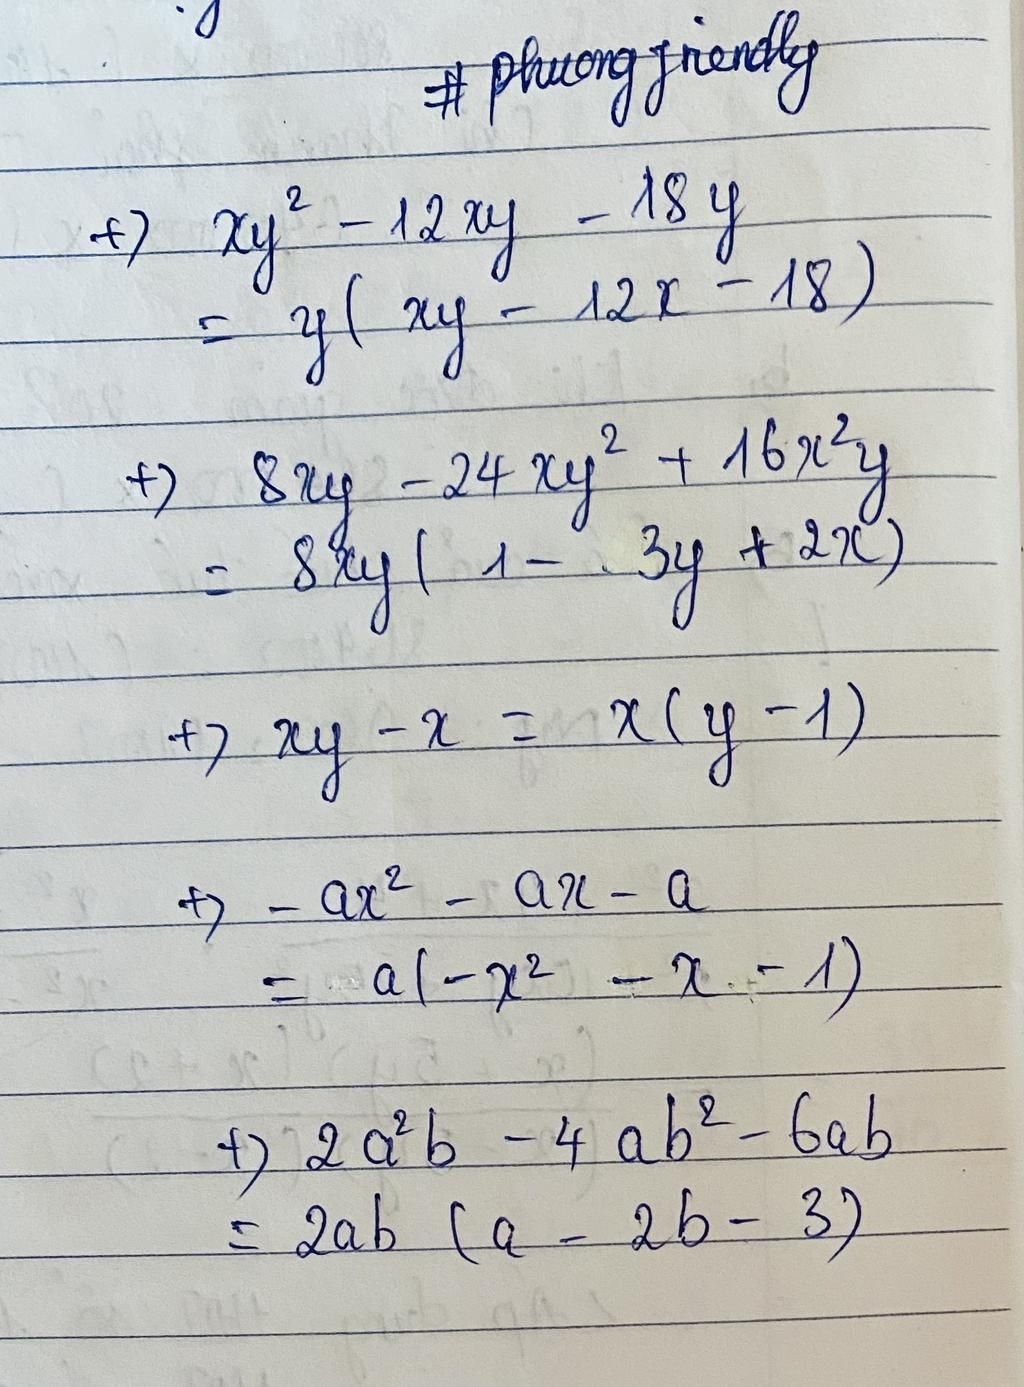 # phuong friendly
+) xy² - 12xy - 18y
= y( xy - 12x - 18)
+) 8xy - 24xy² + 16x²y
= 8xy( 1 - 3y + 2x)
+) xy - x = x(y - 1)
+) - ax² - ax - a
= a(-x² - x - 1)
+) 2a²b - 4ab² - 6ab
= 2ab (a - 2b - 3)